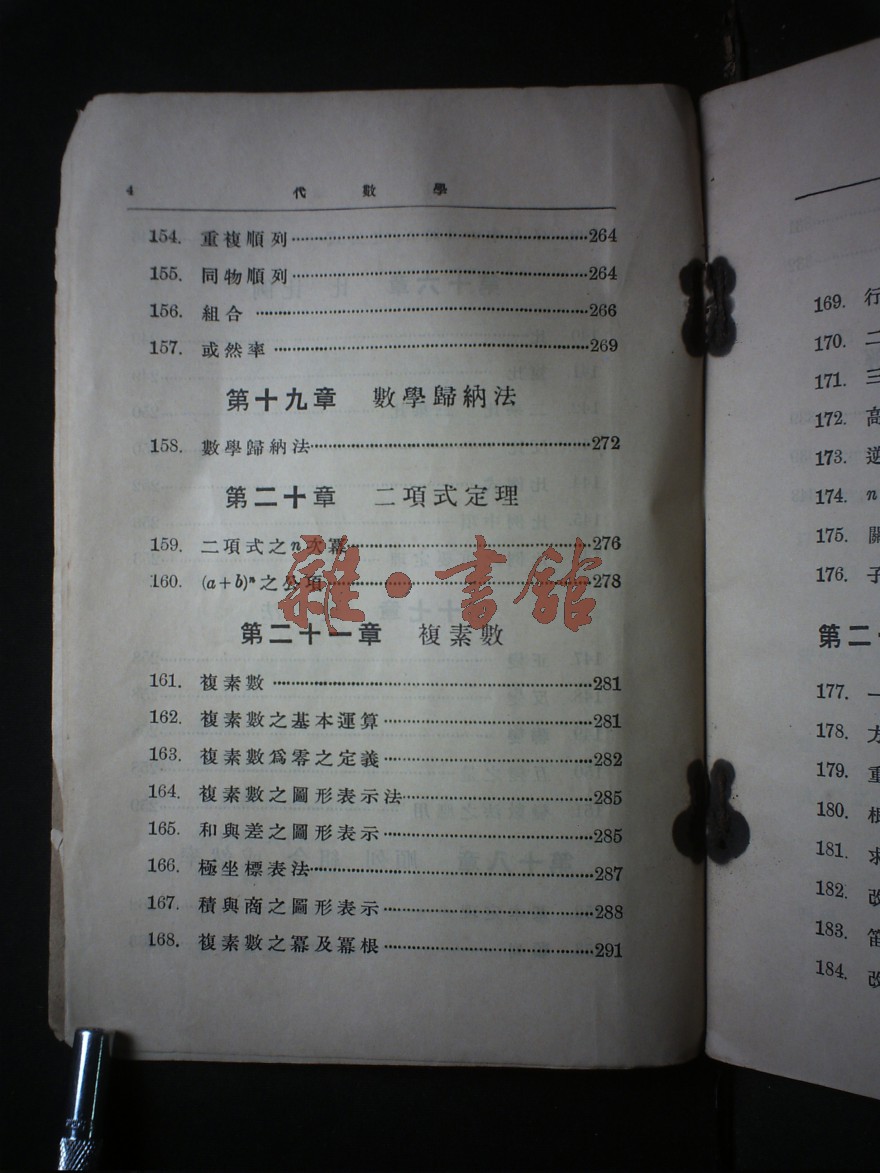 4 代數學
154. 重複順列 264
155. 同物順列 264
156. 組合 266
157. 或然率 269
第十九章 數學歸納法
158. 數學歸納法 272
第二十章 二項式定理
159. 二項式之n次冪 276
160. (a+b)ⁿ之公項 278
雜·書館
第二十一章 複素數
161. 複素數 281
162. 複素數之基本運算 281
163. 複素數爲零之定義 282
164. 複素數之圖形表示法 285
165. 和與差之圖形表示 285
166. 極坐標表法 287
167. 積與商之圖形表示 288
168. 複素數之冪及冪根 291
169. 行
170. 二
171. 三
172. 高
173. 逆
174. n
175.
176. 子
第二
177. 一
178. 方
179. 重
180. 根
181. 求
182. 改
183.
184. 改